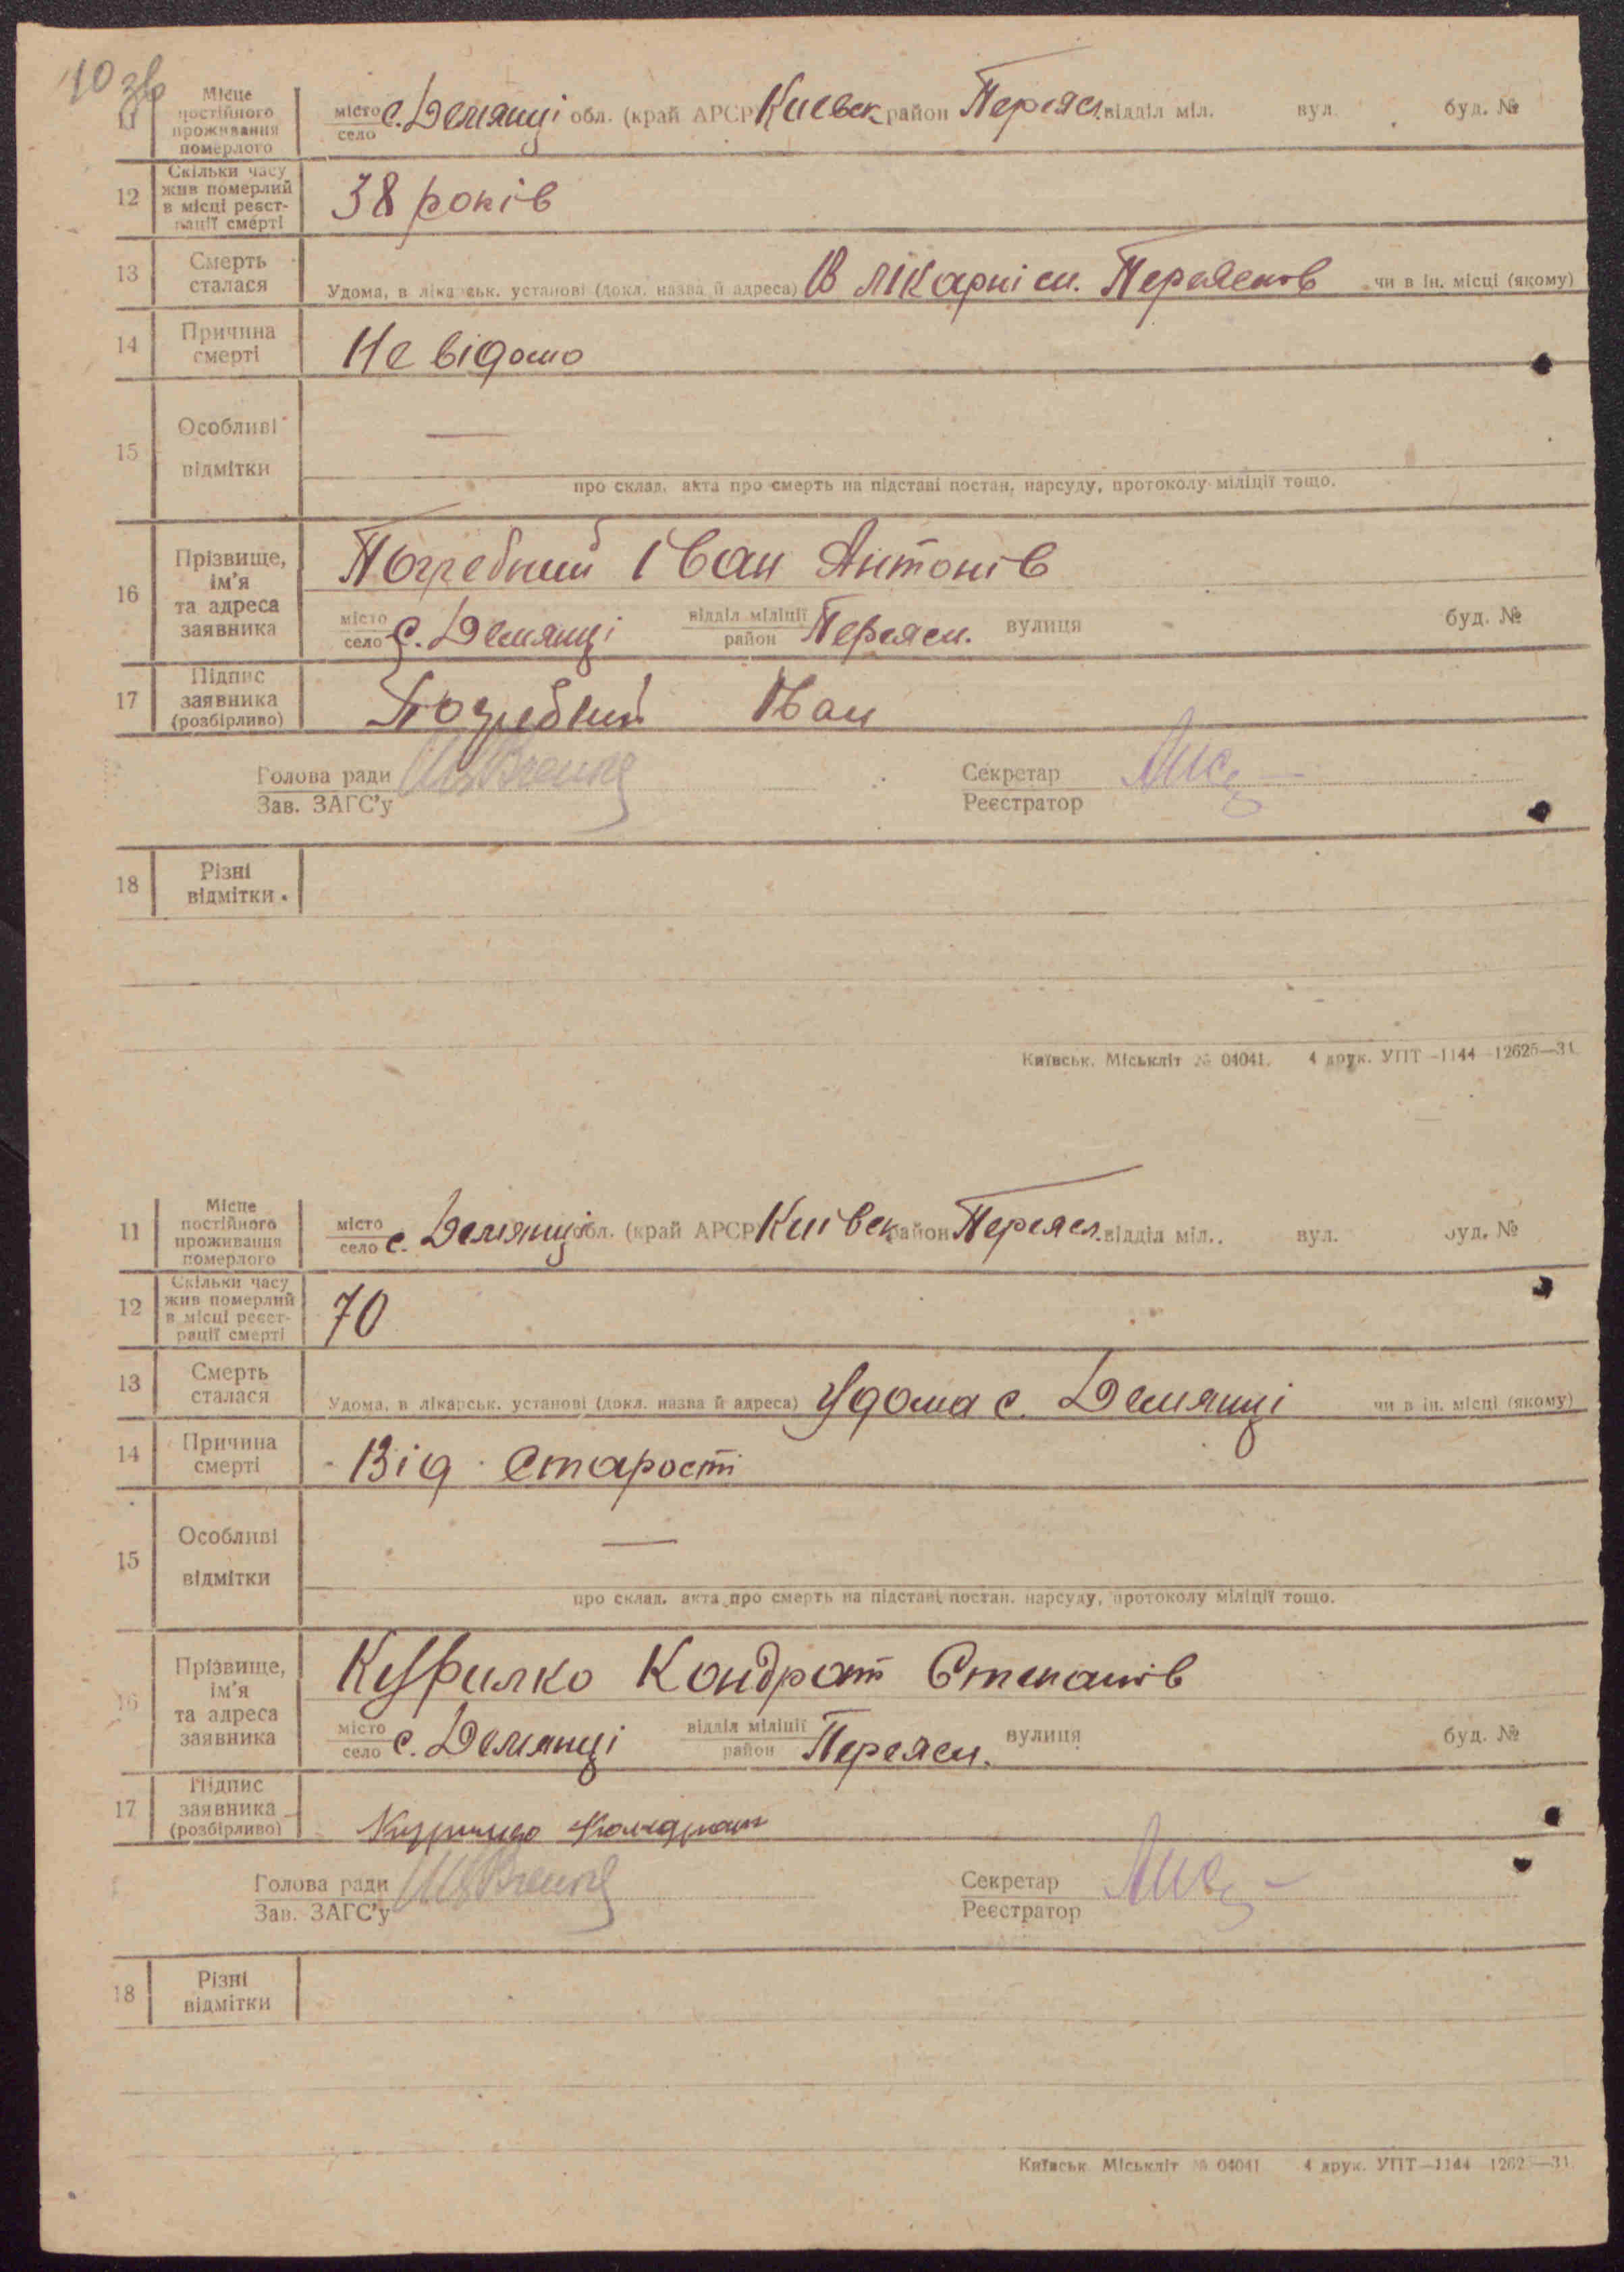 10 зв
11 Місце постійного проживання померлого місто село с. Демянці обл. (край АРСР Киевск район Переясл. відділ міл. вул. буд. №
12 Скільки часу жив померлий в місці реєстрації смерті 38 років
13 Смерть сталася Удома, в лікарськ. установі (докл. назва й адреса) В лікарні см. Переяслов чи в ін. місці (якому)
14 Причина смерті Не відомо
15 Особливі відмітки —
про склад. акта про смерть на підставі постан. нарсуду, протоколу міліції тощо.
16 Прізвище, ім'я та адреса заявника Погребний Іван Антонів
місто село с. Демянці відділ міліції район Переясл. вулиця буд. №
17 Підпис заявника (розбірливо) Погребний Іван
Голова ради Секретар
Зав. ЗАГС'у Реєстратор
18 Різні відмітки
Київськ. Міськліт № 04041. 4 друк. УПТ—1144—12625—31
11 Місце постійного проживання померлого місто село с. Демянці обл. (край АРСР Київск район Переясл. відділ міл. вул. буд. №
12 Скільки часу жив померлий в місці реєстрації смерті 70
13 Смерть сталася Удома, в лікарськ. установі (докл. назва й адреса) Удома с. Демянці чи в ін. місці (якому)
14 Причина смерті Від старости
15 Особливі відмітки —
про склад. акта про смерть на підставі постан. нарсуду, протоколу міліції тощо.
16 Прізвище, ім'я та адреса заявника Курилко Кондрат Степанів
місто село с. Демянці відділ міліції район Переясл. вулиця буд. №
17 Підпис заявника (розбірливо) Курилко Кондрат
Голова ради Секретар
Зав. ЗАГС'у Реєстратор
18 Різні відмітки
Київськ. Міськліт № 04041 4 друк. УПТ—1144